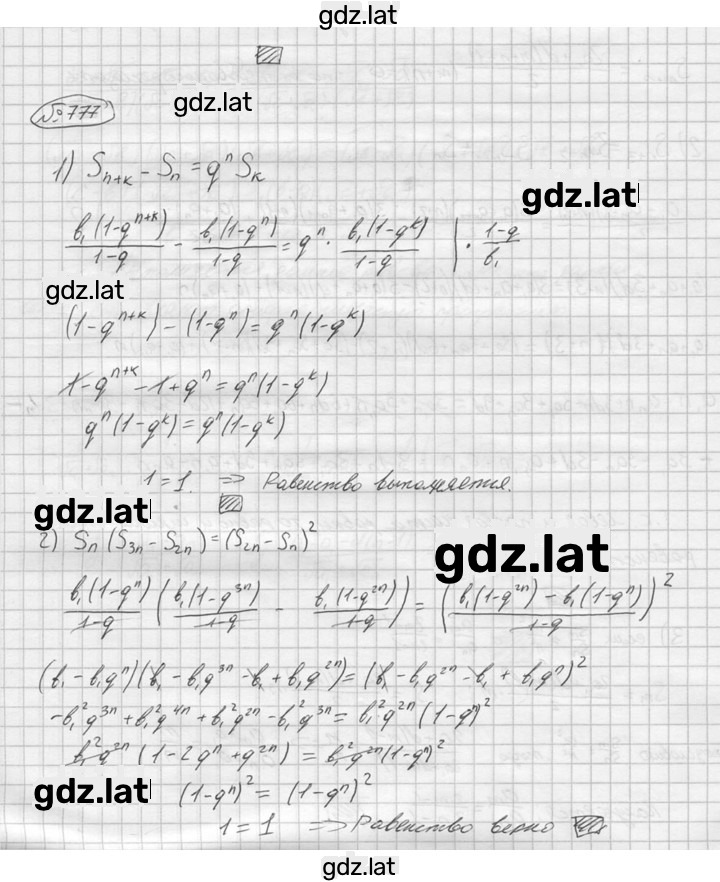 gdz.lat
№777
gdz.lat
1) S_{n+k} - S_n = q^n S_k
gdz.lat
b_1(1-q^{n+k})/(1-q) - b_1(1-q^n)/(1-q) = q^n · b_1(1-q^k)/(1-q) | · (1-q)/b_1
gdz.lat
(1-q^{n+k}) - (1-q^n) = q^n(1-q^k)
1-q^{n+k} - 1 + q^n = q^n(1-q^k)
q^n(1-q^k) = q^n(1-q^k)
1 = 1. => Равенство выполняется.
gdz.lat
2) S_n(S_{3n} - S_{2n}) = (S_{2n} - S_n)^2
gdz.lat
b_1(1-q^n)/(1-q) (b_1(1-q^{3n})/(1-q) - b_1(1-q^{2n})/(1-q)) = ((b_1(1-q^{2n}) - b_1(1-q^n))/(1-q))^2
(b_1 - b_1q^n)(b_1 - b_1q^{3n} - b_1 + b_1q^{2n}) = (b_1 - b_1q^{2n} - b_1 + b_1q^n)^2
-b_1^2q^{3n} + b_1^2q^{4n} + b_1^2q^{2n} - b_1^2q^{3n} = b_1^2q^{2n}(1-q^n)^2
b_1^2q^{2n}(1-2q^n+q^{2n}) = b_1^2q^{2n}(1-q^n)^2
gdz.lat
(1-q^n)^2 = (1-q^n)^2
1 = 1 => Равенство верно
gdz.lat